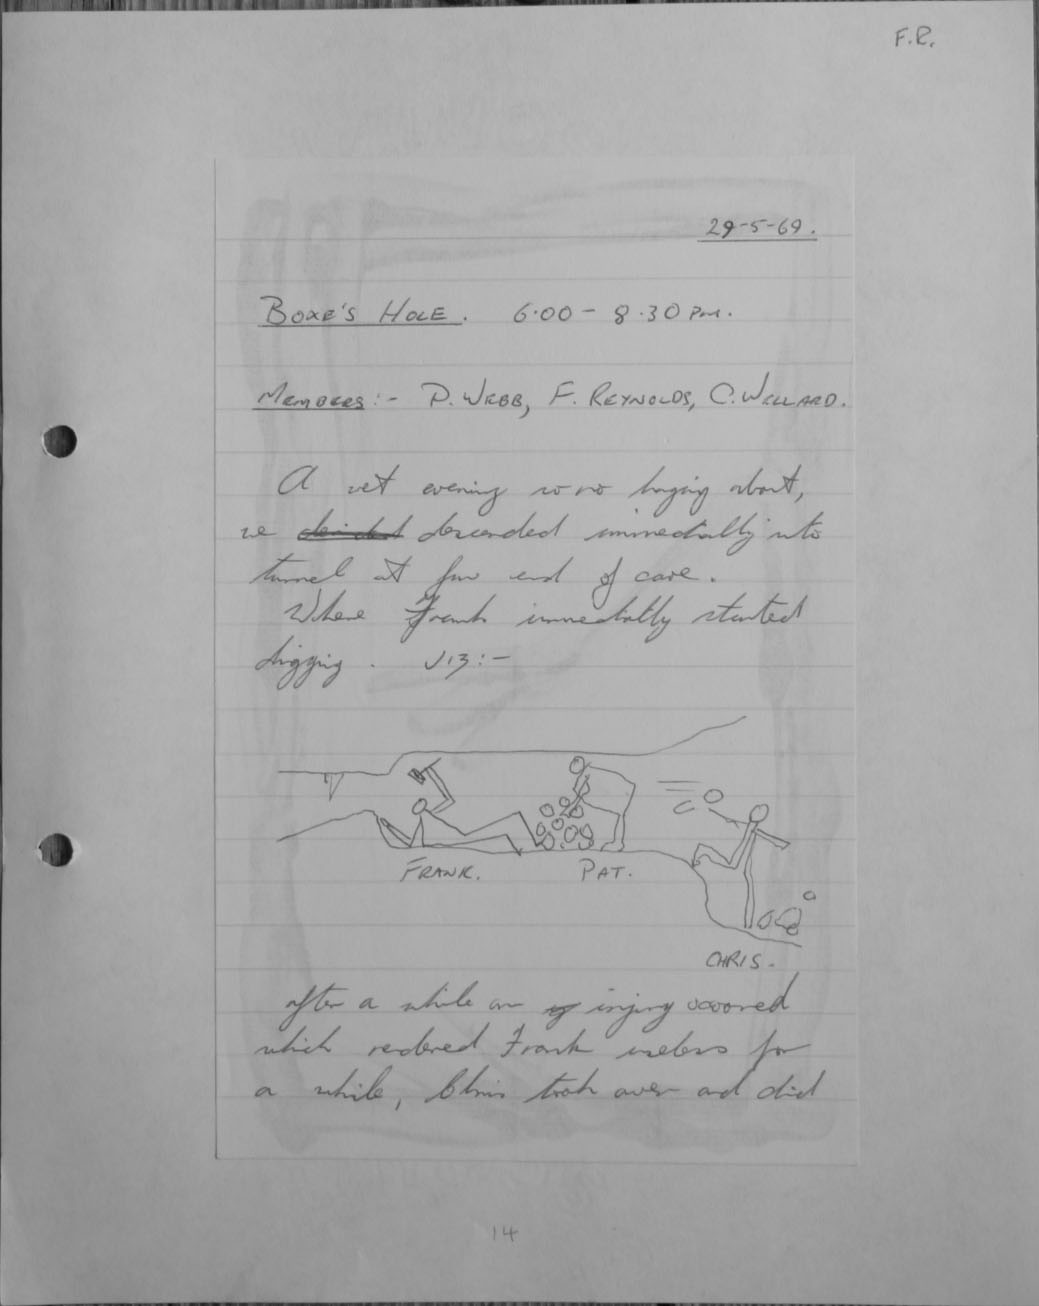 F.R.
29-5-69.
BOXE'S HOLE. 6.00 - 8.30 PM.
MEMBERS :- P. WEBB, F. REYNOLDS, C. WILLARD.
A wet evening so no hanging about,
we descended immediatly into
tunnel at far end of cave.
Where Frank immediatly started
digging. VIZ :-
FRANK.
PAT.
CHRIS.
after a while an injury occored
which rendered Frank useless for
a while, Chris took over and did
14